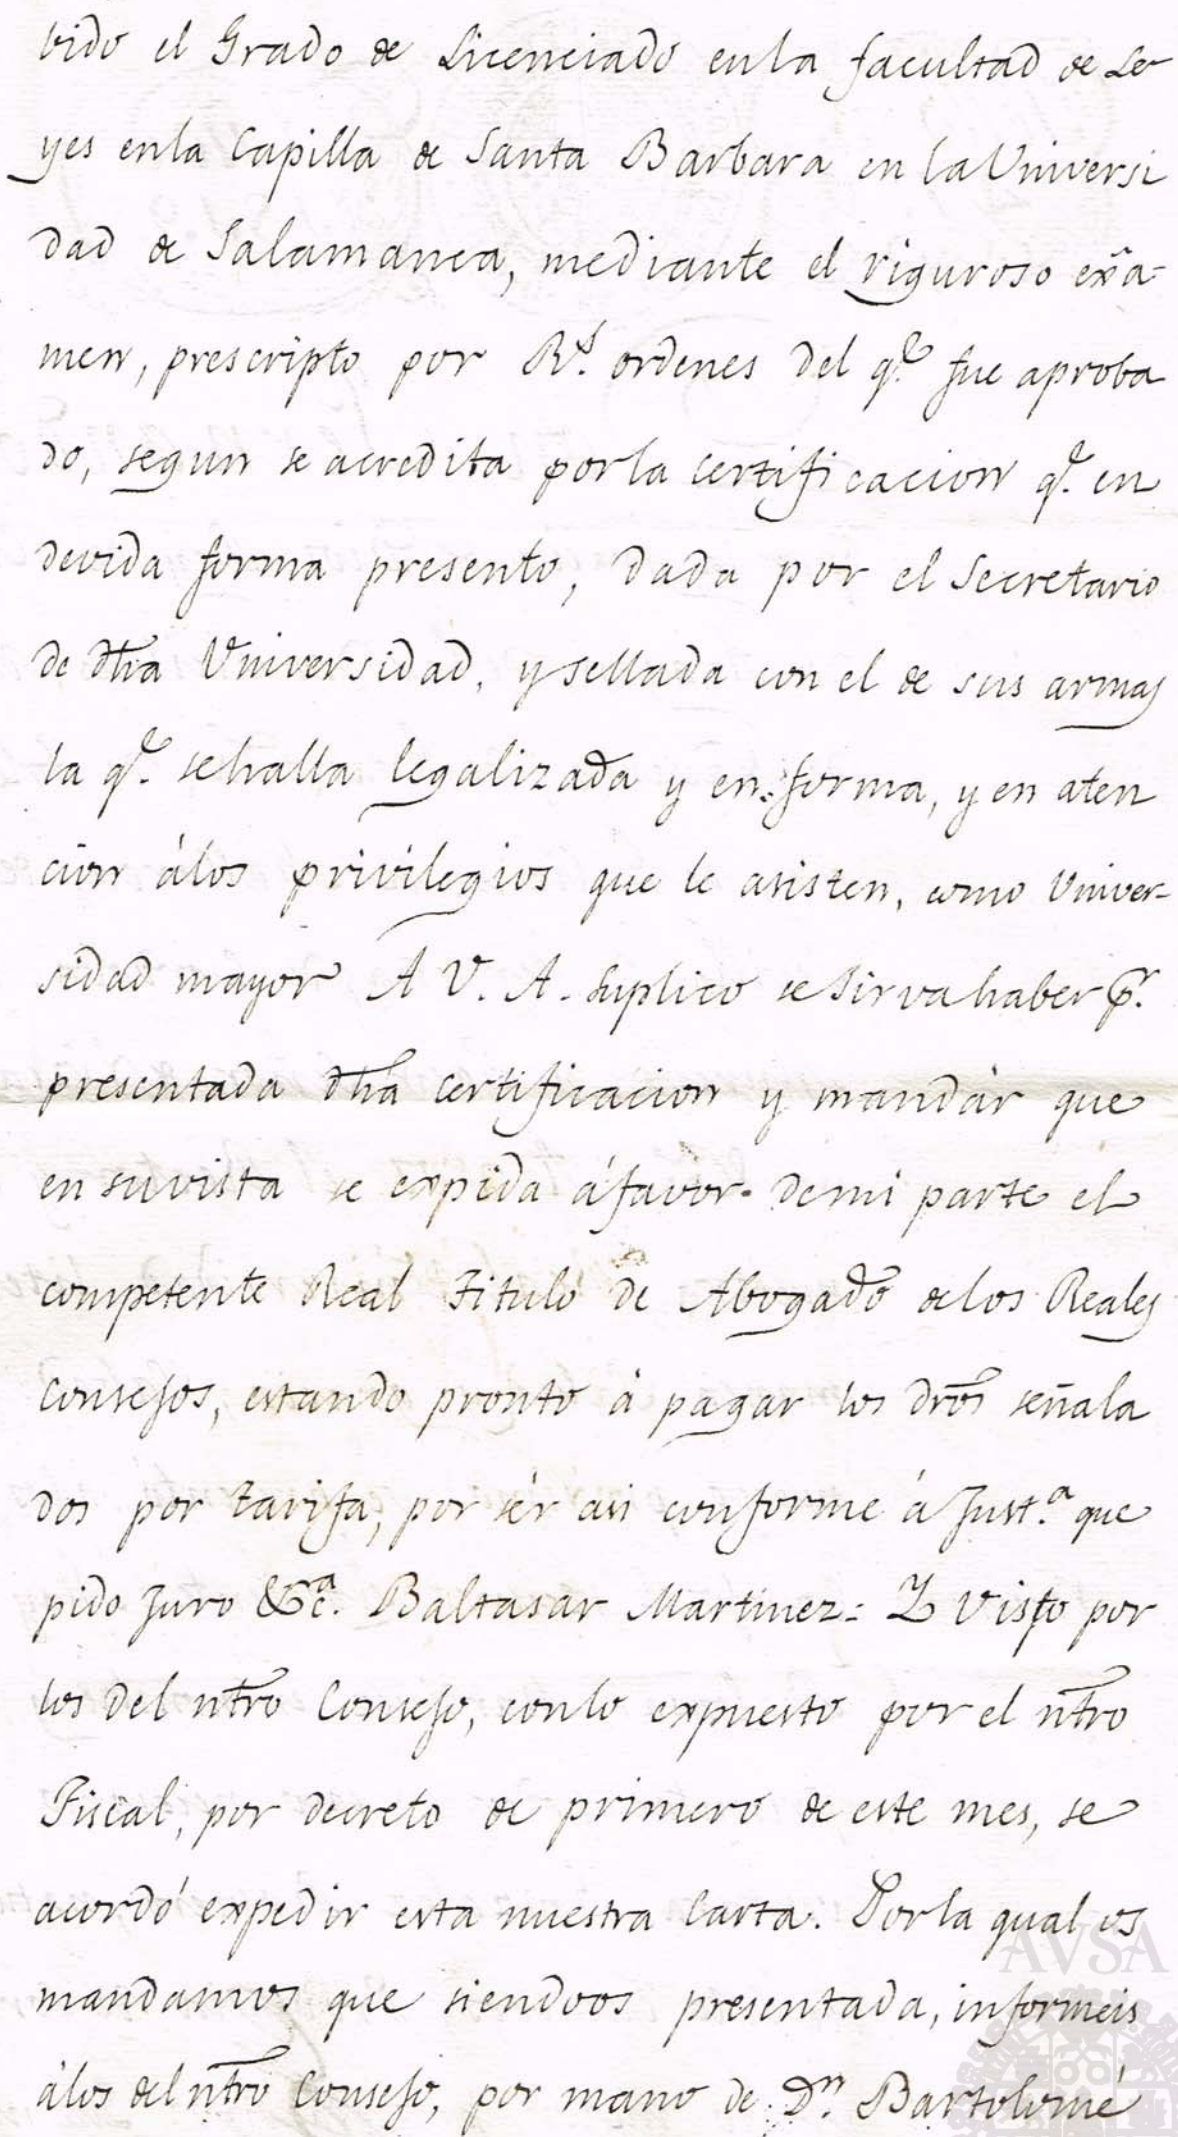 bido el Grado de Licenciado enla facultad de Le-
yes enla Capilla de Santa Barbara en la Universi
dad de Salamanca, mediante el riguroso exâ-
men, prescripto por Rˢ. ordenes del qᵉ. fue aproba
do, segun se acredita porla certificacion qᵉ. en
devida forma presento, dada por el Secretario
de dha Universidad, y sellada con el de sus armas
la qᵉ. sehalla legalizada y en forma, y en aten
cion álos privilegios que le asisten, como Univer-
sidad mayor A V. A. suplico se sirva haber pʳ.
presentada dha certificacion y mandár que
en suvista se expida á favor demi parte el
competente Real Titulo de Abogado delos Reales
Consejos, estando pronto á pagar los dros señala
dos por tarifa, por sér asi conforme á Justᵃ. que
pido Juro &cᵃ. Baltasar Martinez: Y visto por
los del ntro Consejo, conlo expuesto por el ntro
Fiscal, por decreto de primero de este mes, se
acordó expedir esta nuestra Carta. Porla qual os
mandamos que siendoos presentada, informeis
álos del ntro Consejo, por mano de Dⁿ. Bartolomé
AVSA